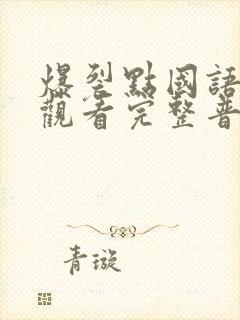 爆裂點國語
觀看完整普
青璇